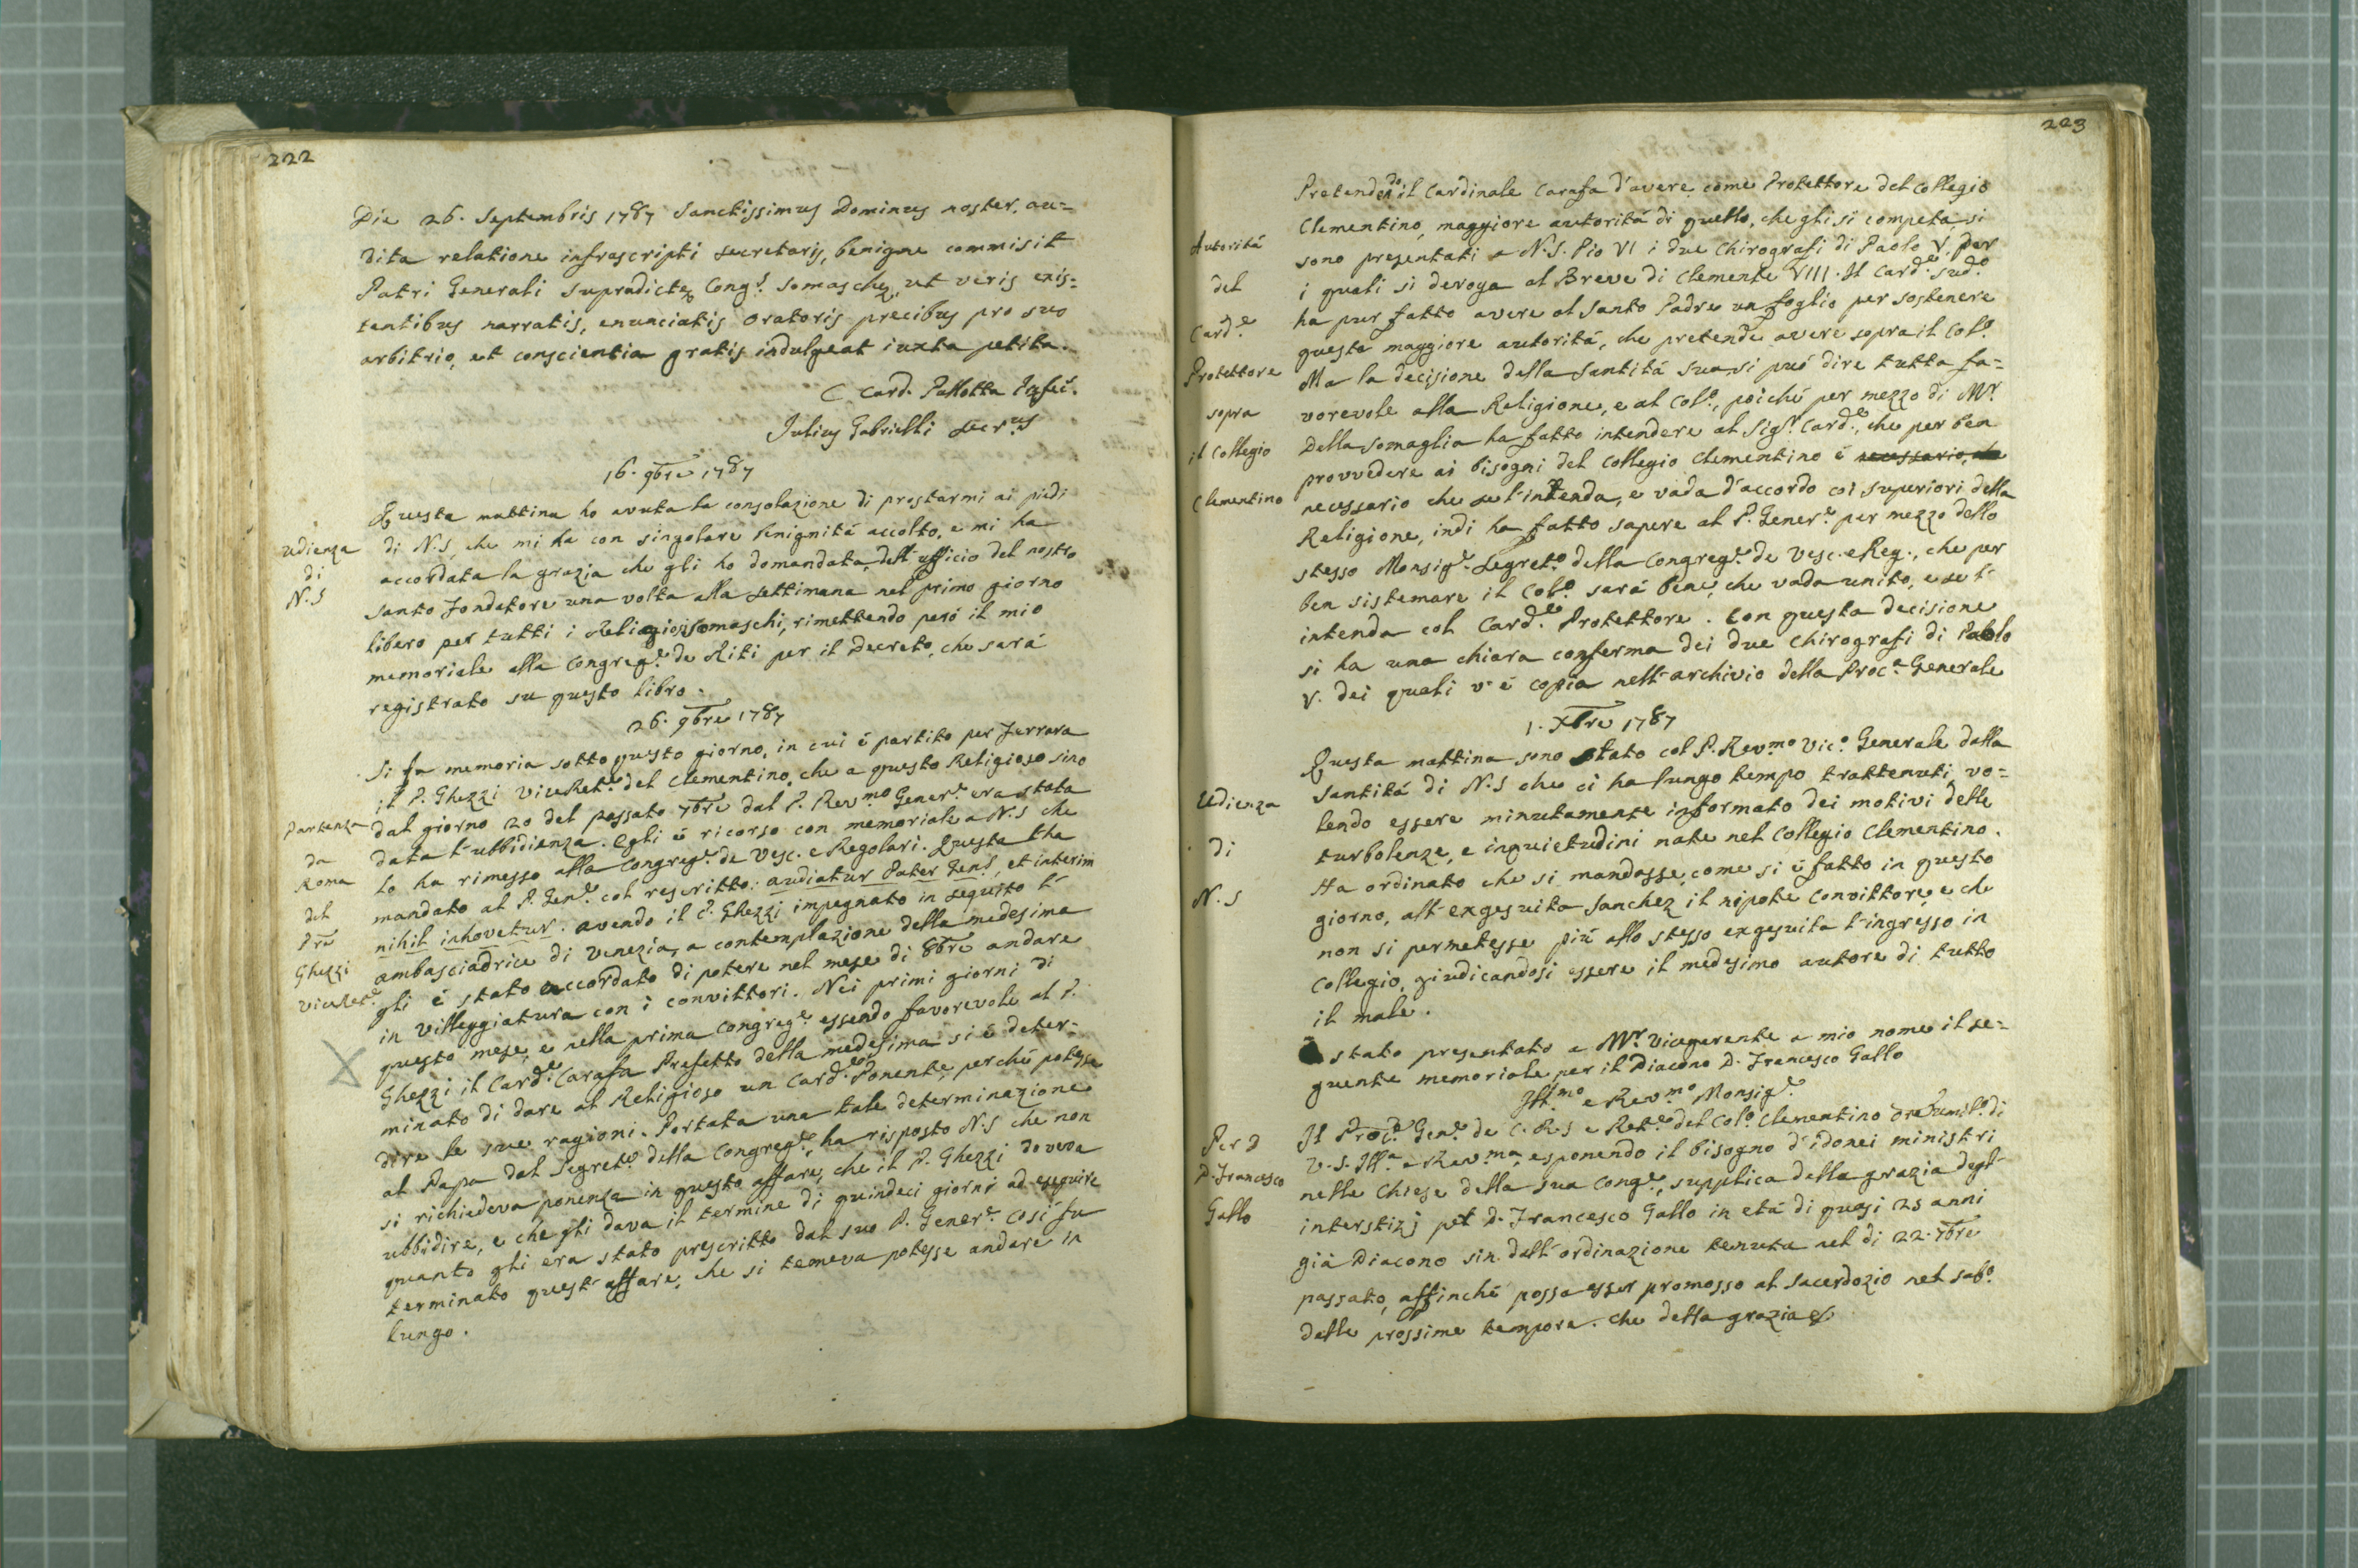 222
Die 26. Septembris 1787 Sanctissimus Dominus noster, au=
dita relatione infrascripti secretarij, benigne commisit
Patri Generali supradictę Congṣ. Somaschę, ut veris exis=
tentibus narratis, enunciatis oratoris precibus pro suo
arbitrio, et conscientia gratis indulgeat iuxta petita.
C Card. Pallotta Pręfec.
Julius Gabrielli Secr.us
16. 9bre 1787
Udienza
di
N.S
Questa mattina ho avuta la consolazione di prostarmi ai piedi
di N.S, che mi ha con singolare benignitá accolto, e mi ha
accordata la grazia che gli ho domandata, dell'ufficio del nostro
santo Fondatore una volta alla settimana nel primo giorno
libero per tutti i Religiosi Somaschi, rimettendo peró il mio
memoriale alla Congreg.e de Riti per il Decreto, che sará
registrato su questo libro.
26. 9bre 1787
Partenza
da
Roma
del
Pre
Ghezzi
ViceRet.e
Si fa memoria sotto questo giorno, in cui é partito per Ferrara
il P. Ghezzi ViceRet.e del Clementino, che a questo Religioso sino
dal giorno 20 del passato 7bre dal P. Rev.mo Gener.e era stata
data l'ubbidienza. Egli é ricorso con memoriale a N.S che
lo ha rimesso alla Congreg.e de Vesc. e Regolari. Questa l'ha
mandato al P. Gen.e col rescritto: audiatur Pater Gen.s, et interim
nihil inhovetur. avendo il P. Ghezzi impegnato in seguito l'
ambasciadrice di Venezia, a contemplazione della medesima
gli é stato accordato di potere nel mese di 8bre andare
in villeggiatura con i convittori. Nei primi giorni di
questo mese, e nella prima Congreg.e essendo favorevole al P.
Ghezzi il Card.e Carafa Prefetto della medesima si é deter=
minato di dare al Religioso un Card.e Ponente, perché potesse
dire le sue ragioni. Portata una tale determinazione
al Papa dal Segret.o della Congreg.e, ha risposto N.S che non
si richiedeva ponenza in questo affare, che il P. Ghezzi doveva
ubbidire, e che gli dava il termine di quindeci giorni ad eseguire
quanto gli era stato prescritto dal suo P. Gener.e Cosí fu
terminato quest'affare, che si temeva potesse andare in
lungo.
223
Autoritá
del
Card.e
Protettore
sopra
il Collegio
Clementino
Pretendendo il Cardinale Carafa d'avere come Protettore del Collegio
Clementino, maggiore autoritá di quello, che gli si competa, si
sono presentati a N.S. Pio VI i due Chirografi di Paolo V. per
i quali si deroga al Breve di Clemente VIII. Il Card.e sud.o
ha pur fatto avere al Santo Padre un foglio per sostenere
questa maggiore autoritá, che pretende avere sopra il Col.o
Ma la decisione della Santitá sua si puó dire tutta fa=
vorevole alla Religione, e al Col.o, poiché per mezzo di M.r
Della Somaglia ha fatto intendere al Sig.r Card.e, che per ben
provvedere ai bisogni del Collegio Clementino é necessario, che
necessario che se l'intenda, e vada d'accordo coi superiori della
Religione, indi ha fatto sapere al P. Gener.e per mezzo dello
stesso Monsig.e Segret.o della Congreg.e de Vesc. e Reg., che per
ben sistemare il Col.o sará bene, che vada unito, e se l'
intenda col Card.e Protettore. Con questa decisione
si ha una chiara conferma dei due Chirografi di Paolo
V. dei quali v'é copia nell'archivio della Proc.a Generale
1. Xbre 1787
Udienza
di
N.S
Questa mattina sono stato col P. Rev.mo Vic.o Generale dalla
Santitá di N.S che ci ha lungo tempo trattenuti, vo=
lendo essere minutamente informato dei motivi delle
turbolenze, e inquietudini nate nel Collegio Clementino.
Ha ordinato che si mandasse, come si é fatto in questo
giorno, all'exgesuita Sanchez il nipote convittore, e che
non si permetesse piú allo stesso exgesuita l'ingresso in
Collegio, giudicandosi essere il medesimo autore di tutto
il male.
É stato presentato a M.r Vicegerente a mio nome il se=
guente memoriale per il Diacono D. Francesco Gallo
Ill.mo e Rev.mo Monsig.e
Per D
D. Francesco
Gallo
Il Proc.e Gen.e de C.R.S e Ret.e del Col.o Clementino ore humil.o di
V.S. Ill.a e Rev.ma, esponendo il bisogno d'idonei ministri
nelle Chiese della sua Cong.e, supplica della grazia degl'
interstizj pel D. Francesco Gallo in etá di quasi 25 anni
giá Diacono sin dall'ordinazione tenuta nel di 22. 7bre
passato, affinché possa esser promosso al Sacerdozio nel sab.o
delle prossime tempora. Che della grazia &.